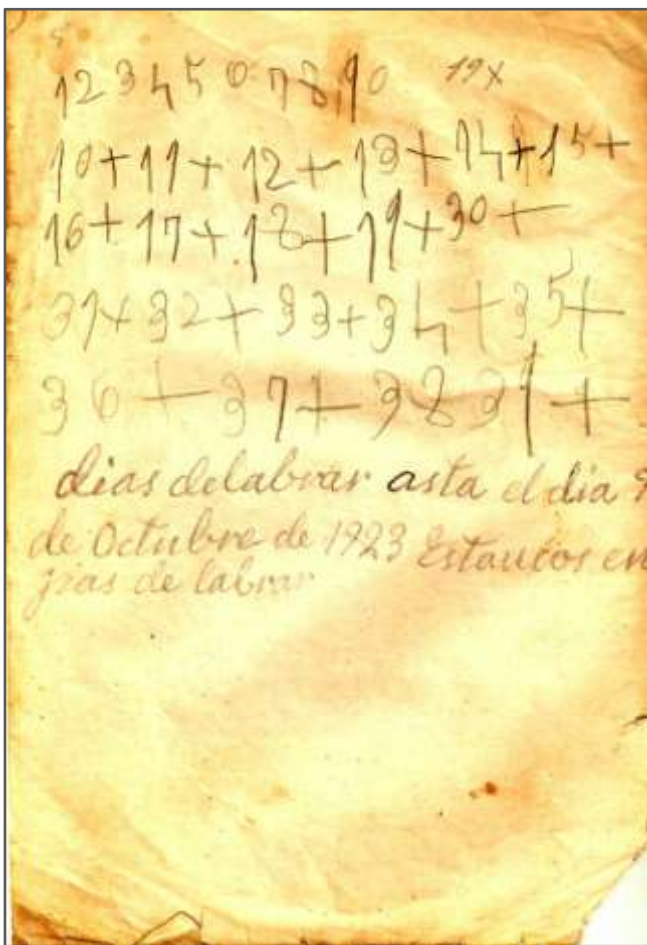 1 2 3 4 5 6 7 8 9 0 19x
10+11+12+13+14+15+
16+17+18+19+30+
31+32+33+34+35+
36+37+38 39+
dias delabrar asta el dia 9
de Octubre de 1923 Estaucos en
jias de labrar